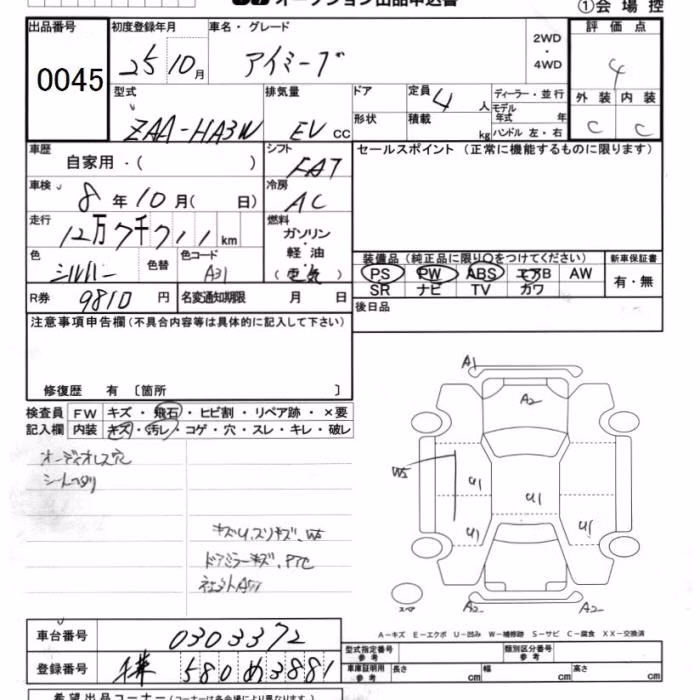 オークション出品申込書 ①会場控
出品番号 初度登録年月 車名・グレード 2WD・4WD 評価点
0045 25 10月 アイミーブ 4
型式 排気量 ドア 定員 4人 ディーラー・並行 外装 内装
モデル年式 年
ZAA-HA3W EV CC 形状 積載 kg ハンドル 左・右 C C
車歴 シフト セールスポイント (正常に機能するものに限ります)
自家用・( ) FAT
車検 8年10月( 日) 冷房 AC
走行 12万7千711km 燃料 ガソリン・軽油(電気)
色 シルバー 色替 色コード A31 装備品 (純正品に限り○をつけてください) 新車保証書
PS PW ABS エアB AW 有・無
R券 9810円 名変通知期限 月 日 SR ナビ TV カワ
注意事項申告欄(不具合内容等は具体的に記入して下さい) 後日品
修復歴 有 〔箇所 〕
検査員 FW キズ・飛石・ヒビ割・リペア跡・×要
記入欄 内装 キズ・汚レ・コゲ・穴・スレ・キレ・破レ
オーディオレス穴
シートヘタリ
A1
A2
W5 U1 U1
U1 U1
キズU、スリキズ、W5
ドアミラーキズ、
スペア A2 A2
A-キズ E-エクボ U-凹み W-補修跡 S-サビ C-腐食 XX-交換済
車台番号 0303372 型式指定番号 参考 類別区分番号 参考
登録番号 580 め 3881 車庫証明用 参考 長さ cm 幅 cm 高さ cm
希望出品コーナー(コーナーは各会場により異なります。)